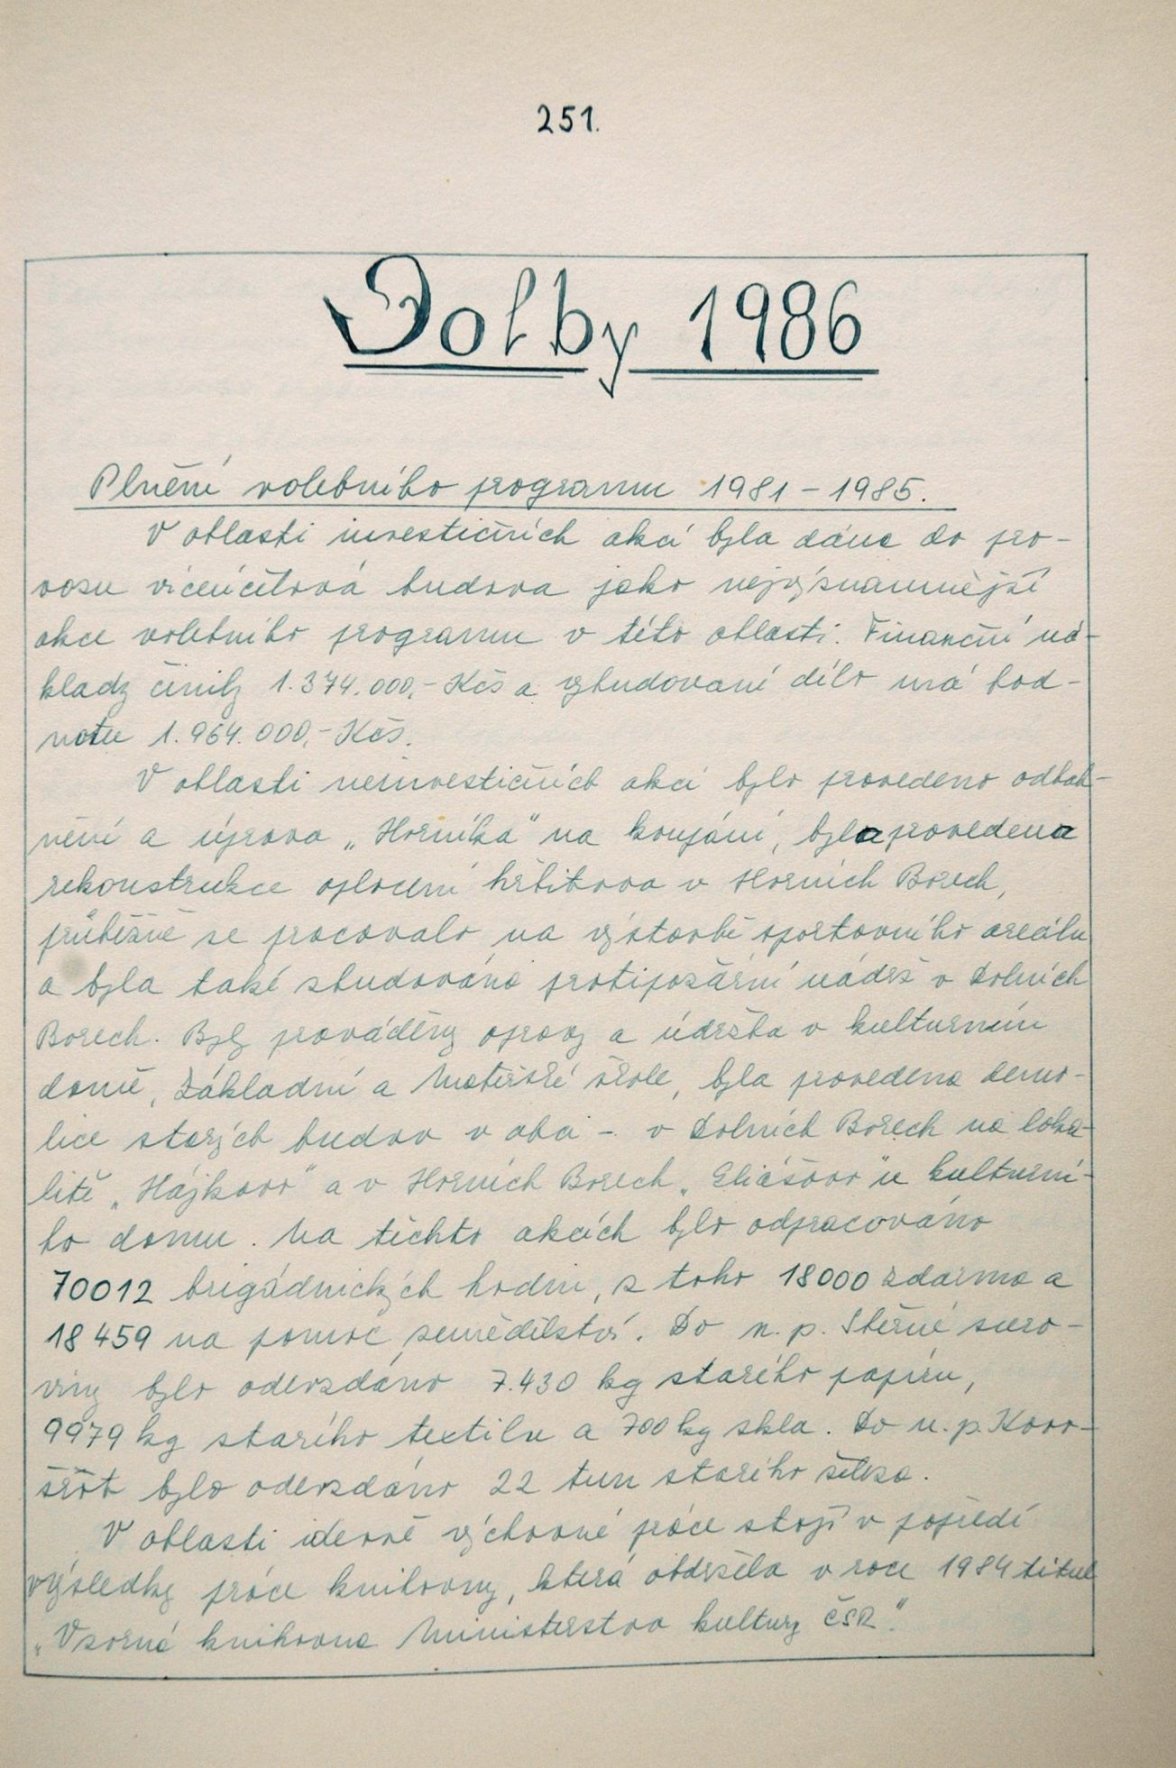 251.
Volby 1986
Plnění volebního programu 1981 - 1985.
V oblasti investičních akcí byla dána do pro-
vozu víceúčelová budova jako nejvýznamnější
akce volebního programu v této oblasti. Finanční ná-
klady činily 1.374.000,- Kčs a vybudované dílo má hod-
notu 1.964.000,- Kčs.
V oblasti neinvestičních akcí bylo provedeno odbah-
nění a úprava „Horníka" na koupání, byla provedena
rekonstrukce oplocení hřbitova v Horních Borech,
průběžně se pracovalo na výstavbě sportovního areálu
a byla také zbudována protipožární nádrž v Dolních
Borech. Byly prováděny opravy a údržba v kulturním
domě, Základní a Mateřské škole, byla provedena demo-
lice starých budov v obci - v Dolních Borech na loka-
litě „Hájkovo" a v Horních Borech „Eliášovo" u kulturní-
ho domu. Na těchto akcích bylo odpracováno
70012 brigádnických hodin, z toho 18000 zdarma a
18459 na pomoc zemědělství. Do n. p. Sběrné suro-
viny bylo odevzdáno 7.430 kg starého papíru,
9979 kg starého textilu a 700 kg skla. Do n. p. Kovo-
šrot bylo odevzdáno 22 tun starého železa.
V oblasti ideově výchovné práce stojí v popředí
výsledky práce knihovny, která obdržela v roce 1984 titul
„Vzorná knihovna Ministerstva kultury ČSR."